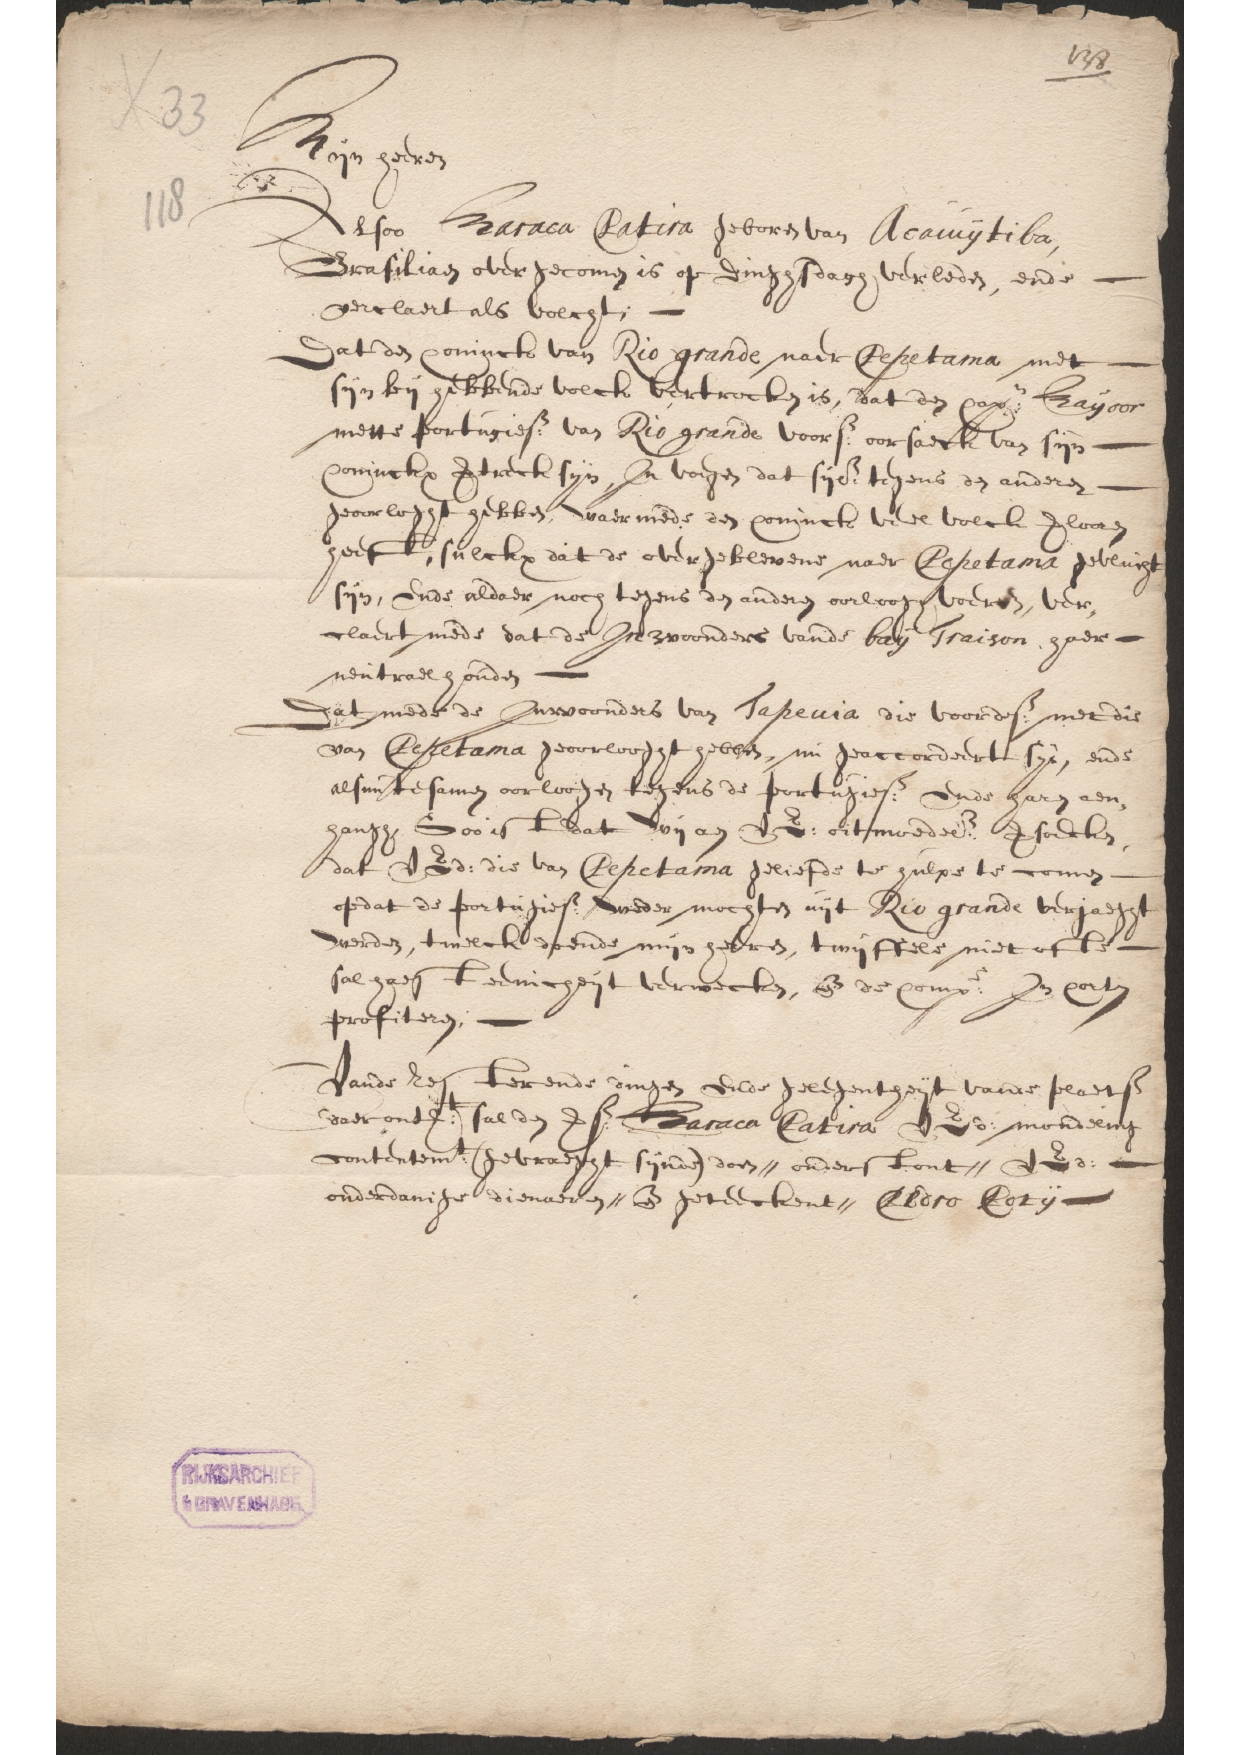 138
X 33
118
Mijn heeren
Alsoo Caraca Catira geboren van Acauuytiba,
Brasiliaen overgecomen is op dinghsdagh verleden, ende
verclaert als volcht;
Dat den coninck van Rio grande naer Cepetama met
sijn bij hebbende volck vertrocken is, dat den cap.n Crayoor
mette portugies: van Rio grande voors: oorsaeck van sijn
conincks vertreck sijn, In voegen dat sij tegens den anderen
geoorlooght hebben, waermede den coninck veel volck verlooren
heeft, sulckx dat de overgeblevene naer Cepetama gevlucht
sijn, Ende aldaer noch tegens den anderen oorloogh voeren, ver,
claert mede dat de Inwoonders vande bay Traison haer
neutrael houden
Dat mede de Inwoonders van Tapeuia die voordes: met die
van Cepetama geoorlooght hebben, nu geaccordeert sijn, ende
alsnu tesamen oorloogen tegens de portugies: Ende haren aen,
hangh, Soo is t dat wij aen UE: oitmoedel: versoecken,
dat UEd: die van Cepetama geliefde te hulpe te comen
opdat de portugies: weder mochten uijt Rio grande verjaeght
werden, twelck doende mijn heeren, twijffele niet ofte
sal haest eenicheijt verwecken, & de comp: In corten
profiteren;
Vande resterende dingen Ende gelegentheijt vande plaets
daer ontrt: sal den vs: Caraca Catira UEd: mondeling
contentemt: (gevraeght sijnde) doen // onderstont // UEd:
onderdanige dienaeren // & geteeckent // Pedro Poty
RIJKSARCHIEF
'sGRAVENHAGE